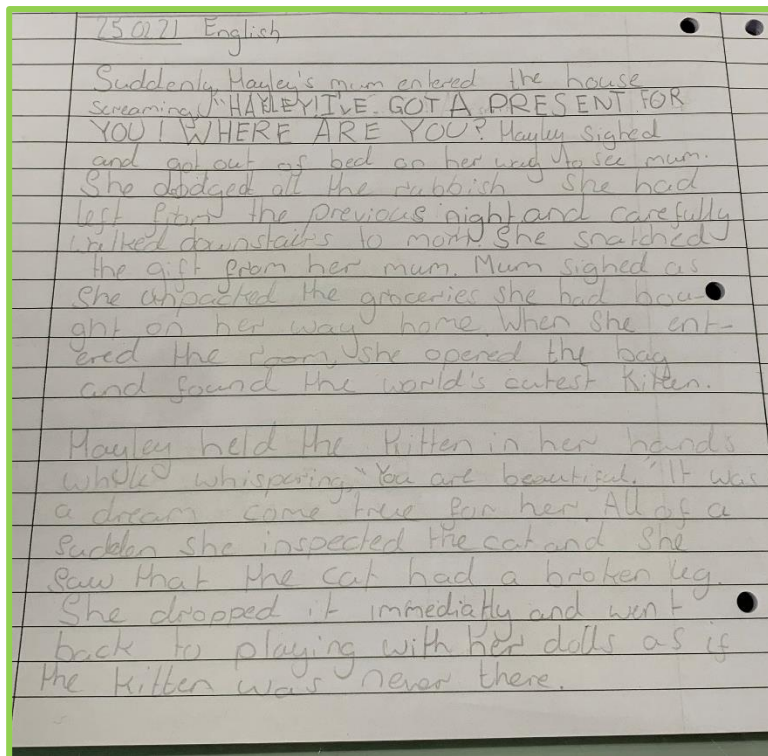 25.02.21 English
Suddenly Hayley's mum entered the house
screaming, "HAYLEY! I'VE GOT A PRESENT FOR
YOU! WHERE ARE YOU? Hayley sighed
and got out of bed on her way to see mum.
She dodged all the rubbish she had
left from the previous night and carefully
walked downstairs to mom. She snatched
the gift from her mum. Mum sighed as
she unpacked the groceries she had bou-
ght on her way home. When she ent-
ered the room, she opened the bag
and found the world's cutest kitten.
Hayley held the kitten in her hands
whispering, "You are beautiful." It was
a dream come true for her. All of a
sudden she inspected the cat and she
saw that the cat had a broken leg.
She dropped it immediatly and went
back to playing with her dolls as if
the kitten was never there.